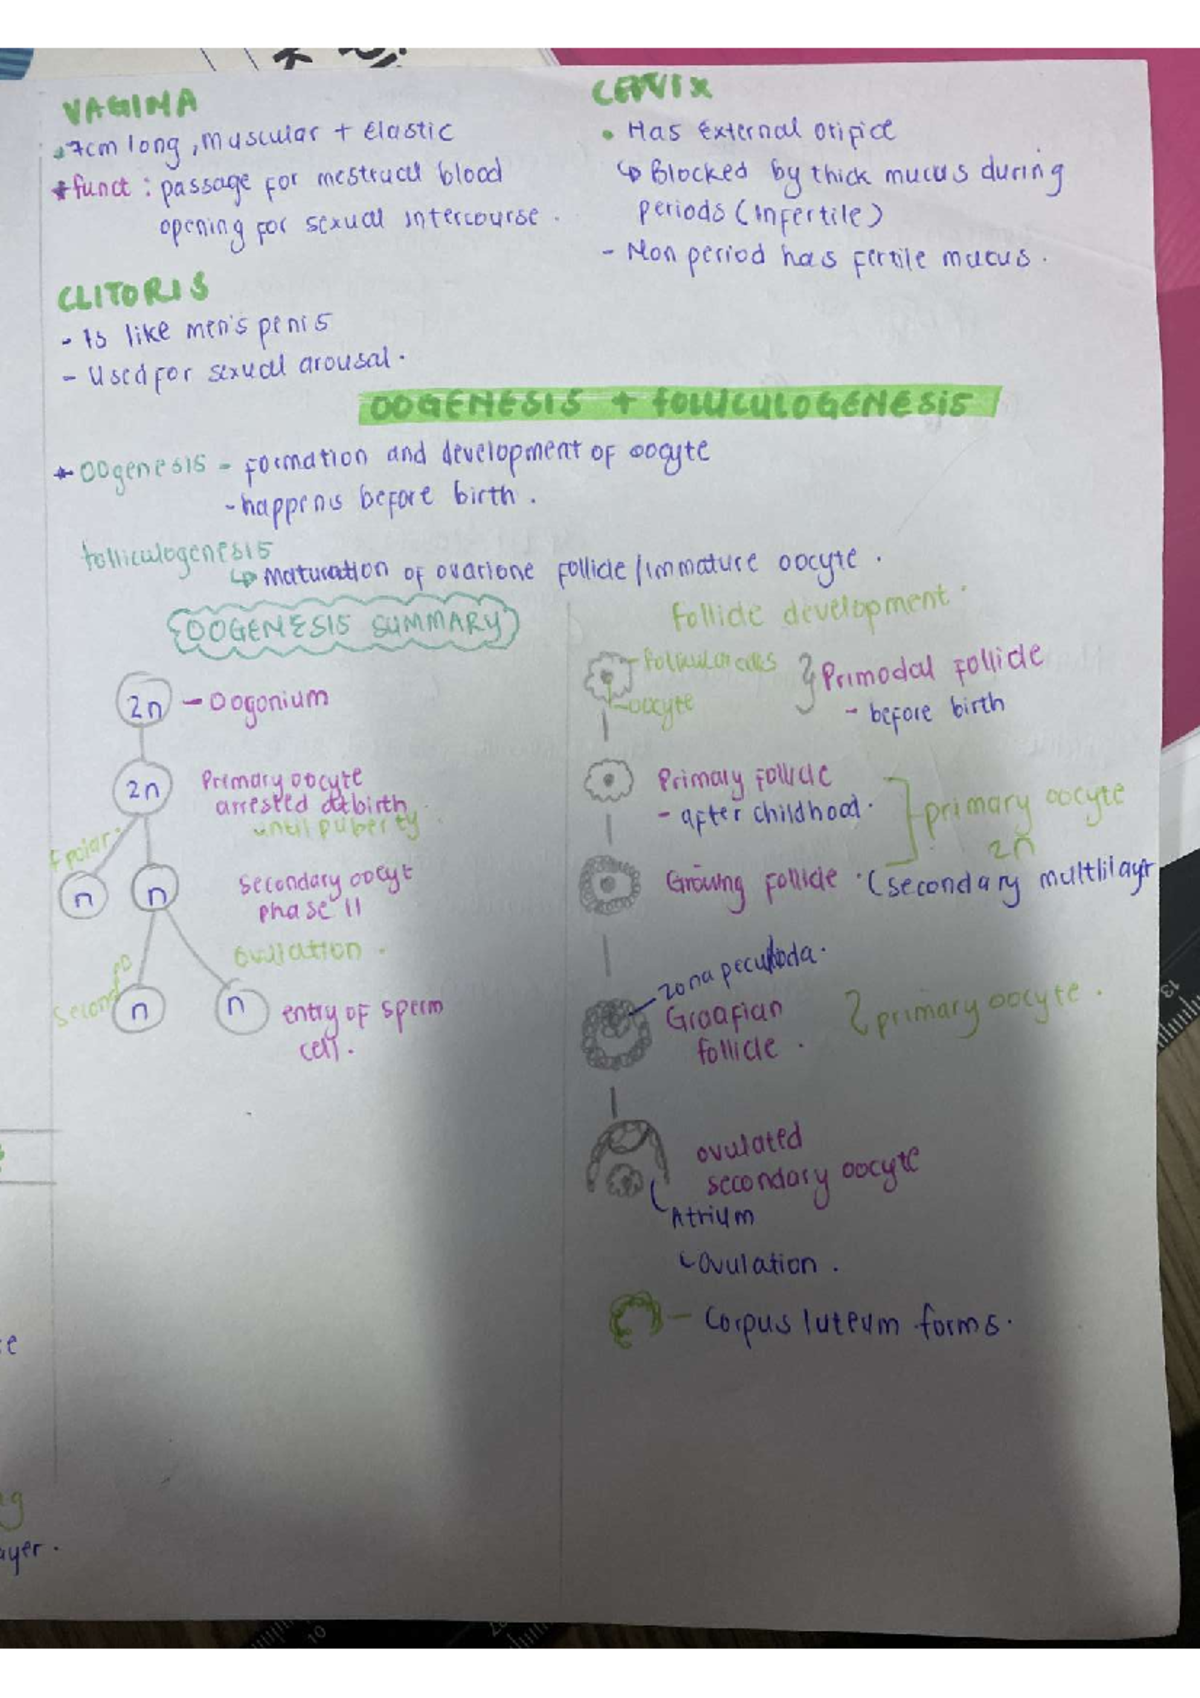 VAGINA
7cm long, muscular + Elastic
* funct : passage for mestrual blood
opening for sexual intercourse.
CLITORIS
- Is like men's penis
- Used for sexual arousal.
CERVIX
• Has External orifice
↳ Blocked by thick mucus during
periods (Infertile)
- Non period has fertile mucus.
OOGENESIS + FOLLICULOGENESIS
* Oogenesis - formation and development of oocyte
- happens before birth.
folliculogenesis
↳ Maturation of ovarione follicle/immature oocyte.
OOGENESIS SUMMARY
2n - Oogonium
2n Primary oocyte
arrested at birth
until puberty
polar
n n Secondary oocyt
phase II
Ovulation.
Second PD
n n entry of sperm
cell.
Follicle development.
follicular cells
oocyte
Primodal follicle
- before birth
Primary follicle
- after childhood.
primary oocyte
2n
Growing follicle (secondary multilayr
zona pecullida.
Graafian
follicle.
primary oocyte.
ovulated
secondary oocyte
Atrium
↳ Ovulation.
- Corpus luteum forms.
e
g
ayer.
13
10